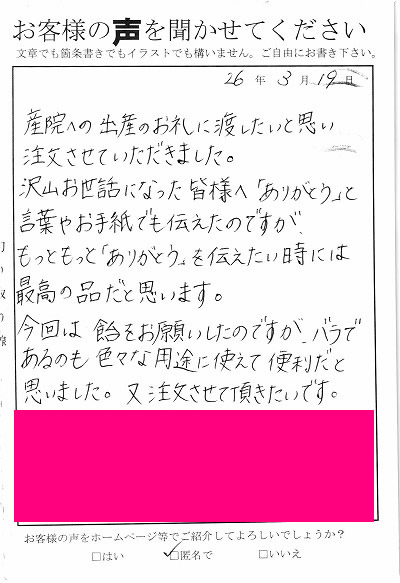 お客様の声を聞かせてください
文章でも箇条書きでもイラストでも構いません。ご自由にお書き下さい。
26年3月19日
産院への出産のお礼に渡したいと思い
注文させていただきました。
沢山お世話になった皆様へ「ありがとう」と
言葉やお手紙でも伝えたのですが、
もっともっと「ありがとう」を伝えたい時には
最高の品だと思います。
今回は飴をお願いしたのですが、バラで
あるのも色々な用途に使えて便利だと
思いました。又注文させて頂きたいです。
お客様の声をホームページ等でご紹介してよろしいでしょうか?
□はい ☑匿名で □いいえ